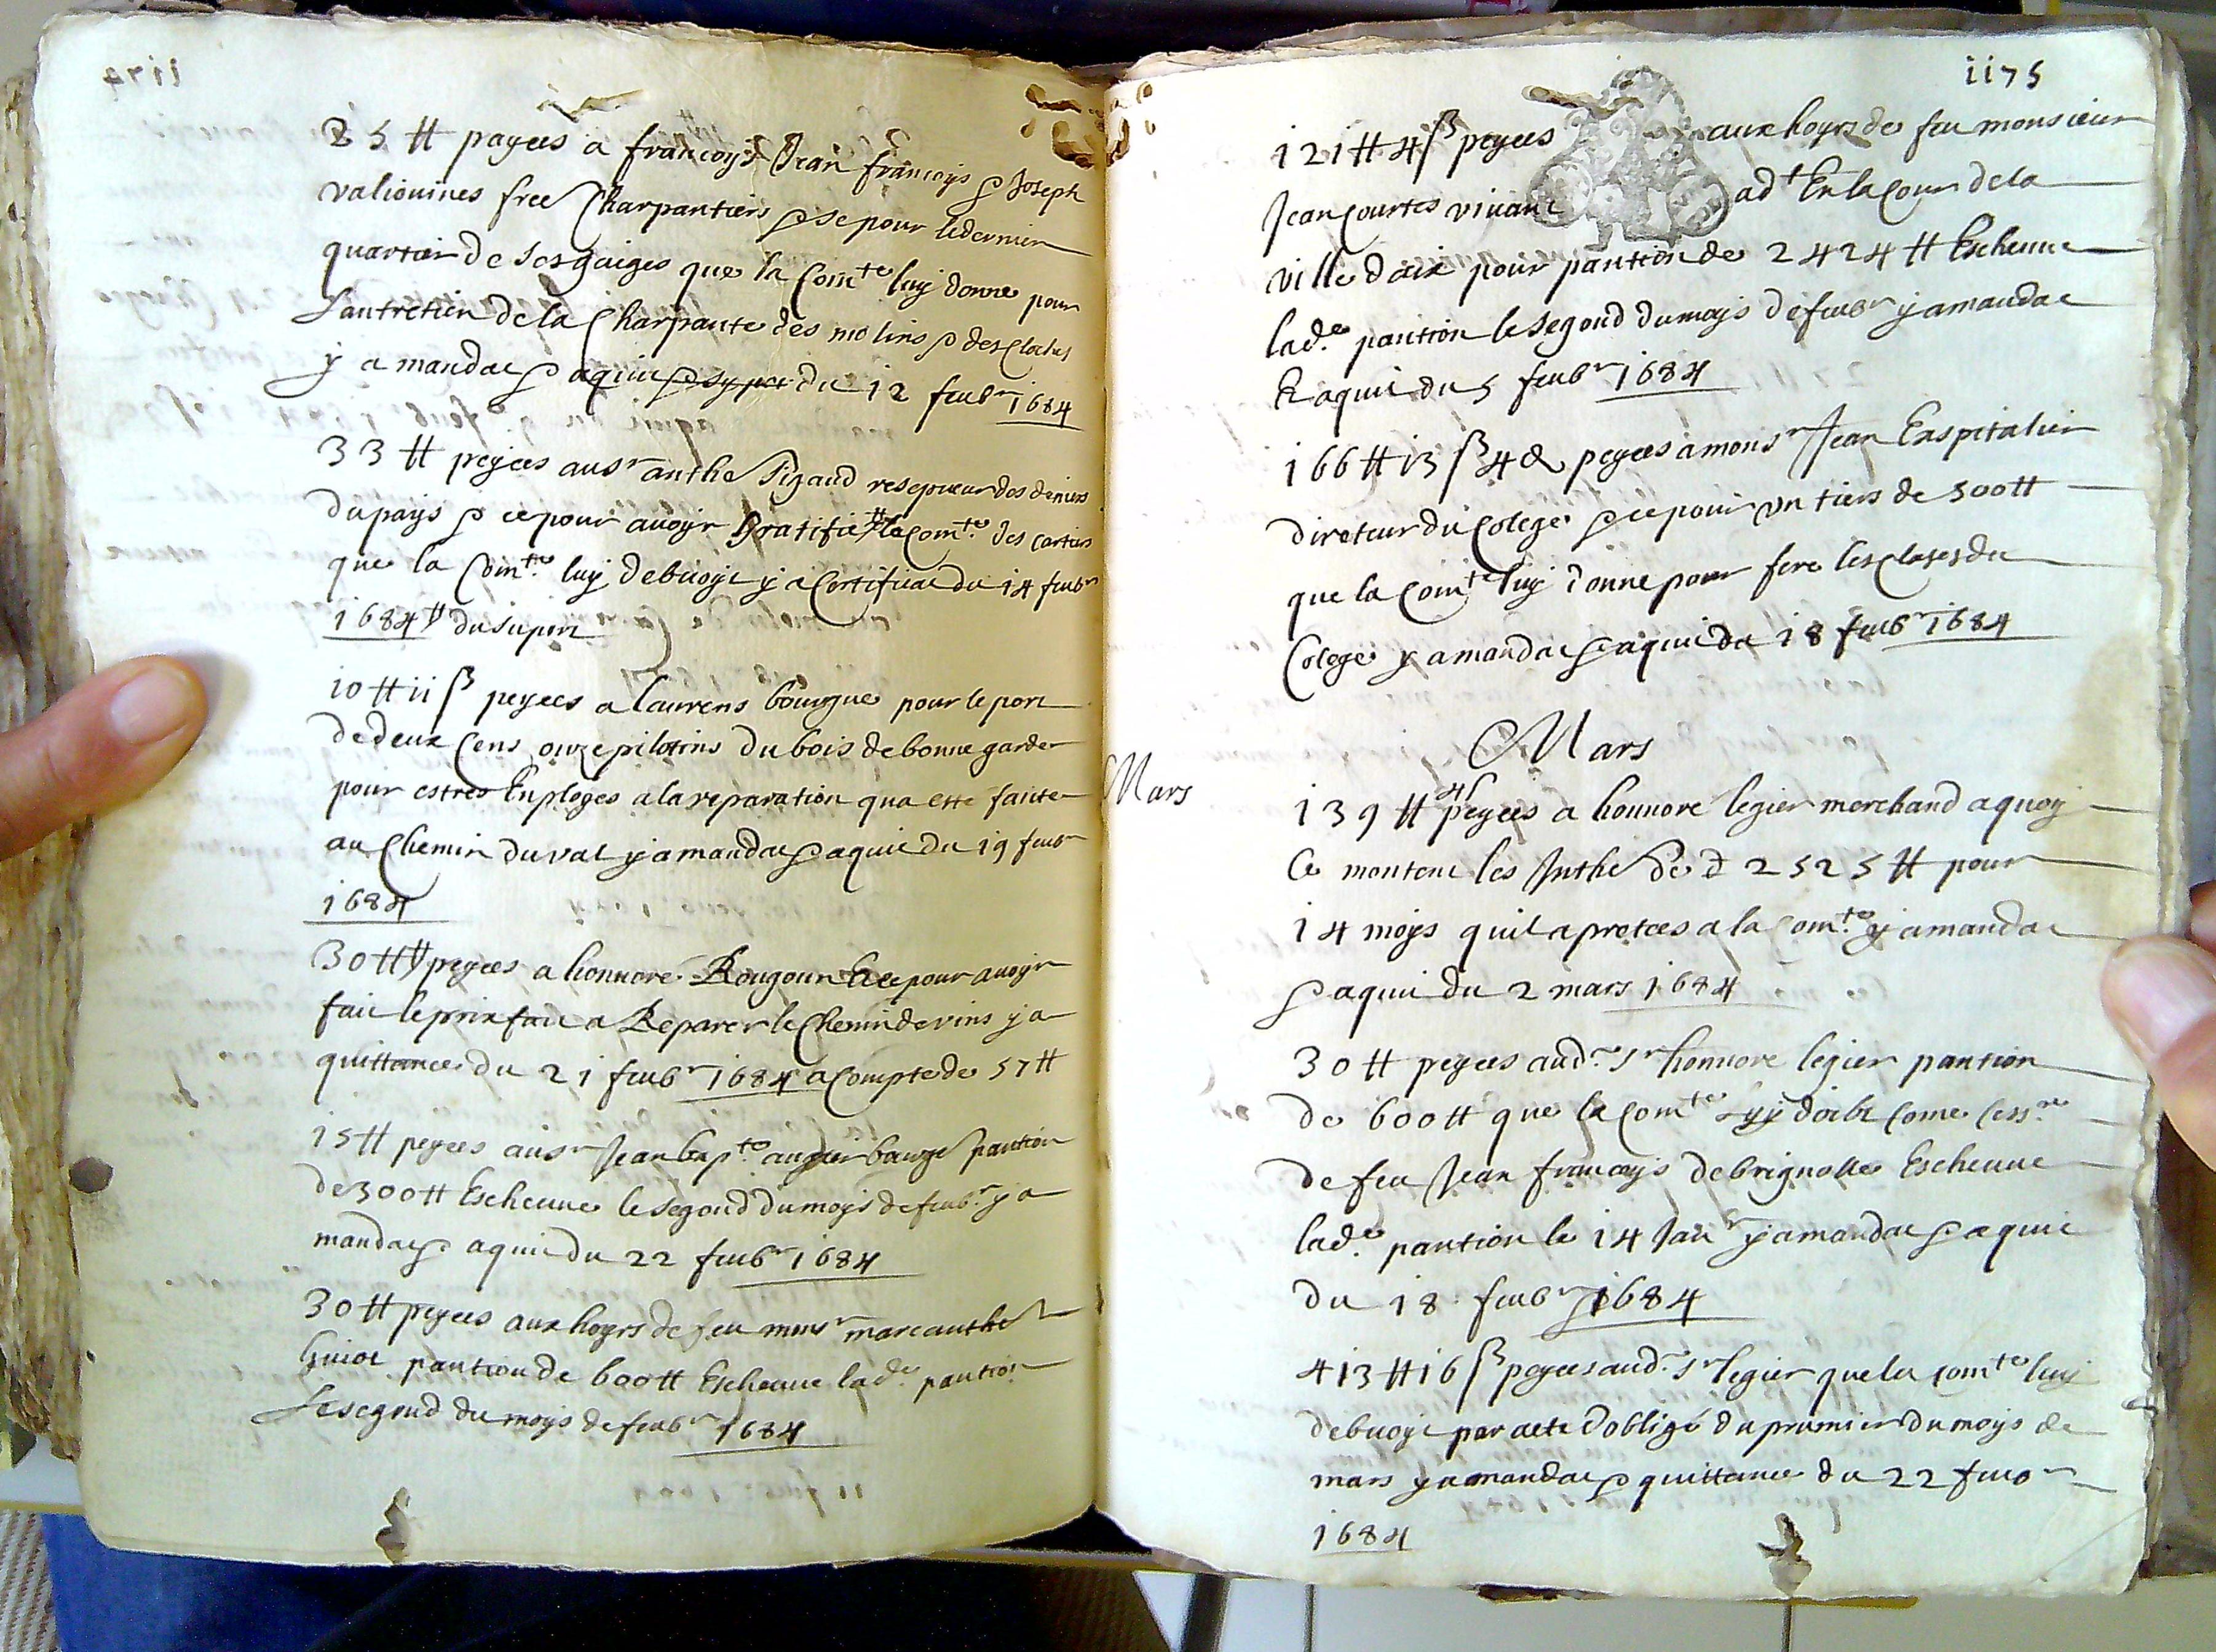 25 ₶ payees a francoys Jean francoys & Joseph
valiouines free Charpantiers & se pour le dernier
quartier de ses gaiges que la Comte luy donne pour
l'antretien de la Charpante des molins & des cloches
y a mandat & aquit du 12 feubr 1684
33 ₶ peyees au sr anthe Sigaud resepveur des deniers
du pays & ce pour avoyr Gratifie la Comte des cartiers
que la Comte luy debuoyt y a Certificat du 14 feubr
1684 du suport
10 ₶ 11 ß peyees a laurens bourgue pour le port
de deux Cens onze pilotins du bois de bonne garde
pour estres Enployes a la reparation qua este faite
au Chemin du val y a mandat & aquit du 19 feubr
1684
30 ₶ peyees a honnore Rougour & ce pour avoyr
fait le prix fait a Reparer le Chemin de vins y a
quittance du 21 feubr 1684 a Compte de 57 ₶
15 ₶ peyees au sr Jean bapte augier bauge pantion
de 300 ₶ Escheuue le segond du moys de feubr y a
mandat & aquit du 22 feubr 1684
30 ₶ peyees aux hoyrs de feu monsr marc anthe
Guiot pantion de 600 ₶ Escheuue lade pantion
le segond du moys de feubr 1684
1175
121 ₶ 4 ß peyees aux hoyrs de feu monsieur
Jean Courtes vivant adt En la Cour de la
ville daix pour pantion de 2424 ₶ Escheuue
lade pantion le segond du moys de feubr y a mandat
& aquit du 5 feubr 1684
166 ₶ 13 ß 4 d peyees a monsr Jean Enspitalier
direteur du Colege & ce pour un tiers de 500 ₶
que la Comte luy donne pour fere les clases du
Colege y a mandat & aquit du 18 feubr 1684
Mars
Mars
139 ₶ 4ß peyees a honnore legier merchand a quoy
Ce montent les Inthe de d 2525 ₶ pour
14 moys quil a pretees a la Comte y a mandat
& aquit du 2 mars 1684
30 ₶ peyees aud sr honnore legier pantion
de 600 ₶ que la Comte luy doibt Come Cessre
de feu Jean francoys de brignolle Escheuue
lade pantion le 14 Janr y a mandat & aquit
du 18 feubr 1684
413 ₶ 16 ß peyees aud sr legier que la Comte luy
debuoyt par acte dobligé du prumier du moys de
mars y a mandat & quittance du 22 feubr
1684